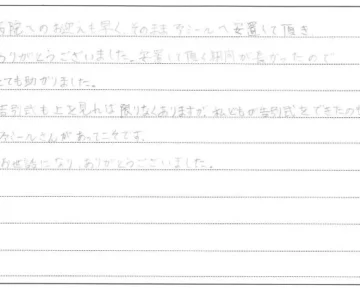 病院へのお迎えも早く、そのままラミールへ安置して頂き
ありがとうございました。安置して頂く期間が長かったので
とても助かりました。
告別式も上を見れば限りなくありますが、私どもが告別式をできたのも
ラミールさんがあってこそです。
お世話になり、ありがとうございました。